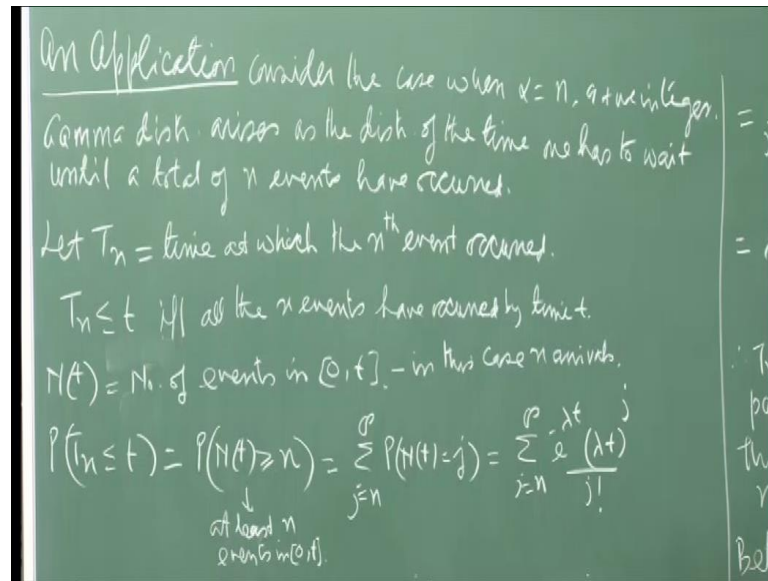 An Application Consider the case when α = n, a +ve integer.
Gamma distn. arises as the distn. of the time one has to wait
until a total of n events have occurred.
Let Tn = time at which the nth event occurred.
Tn ≤ t iff all the n events have occurred by time t.
N(t) = No. of events in [0,t]. - in this case n arrivals.
P(Tn ≤ t) = P(N(t) ≥ n) = ∑_{j=n}^{∞} P(N(t)=j) = ∑_{j=n}^{∞} e^{-λt} (λt)^j / j!
↓
at least n
events in [0,t].
=
=
∴ T
po
th
Bel